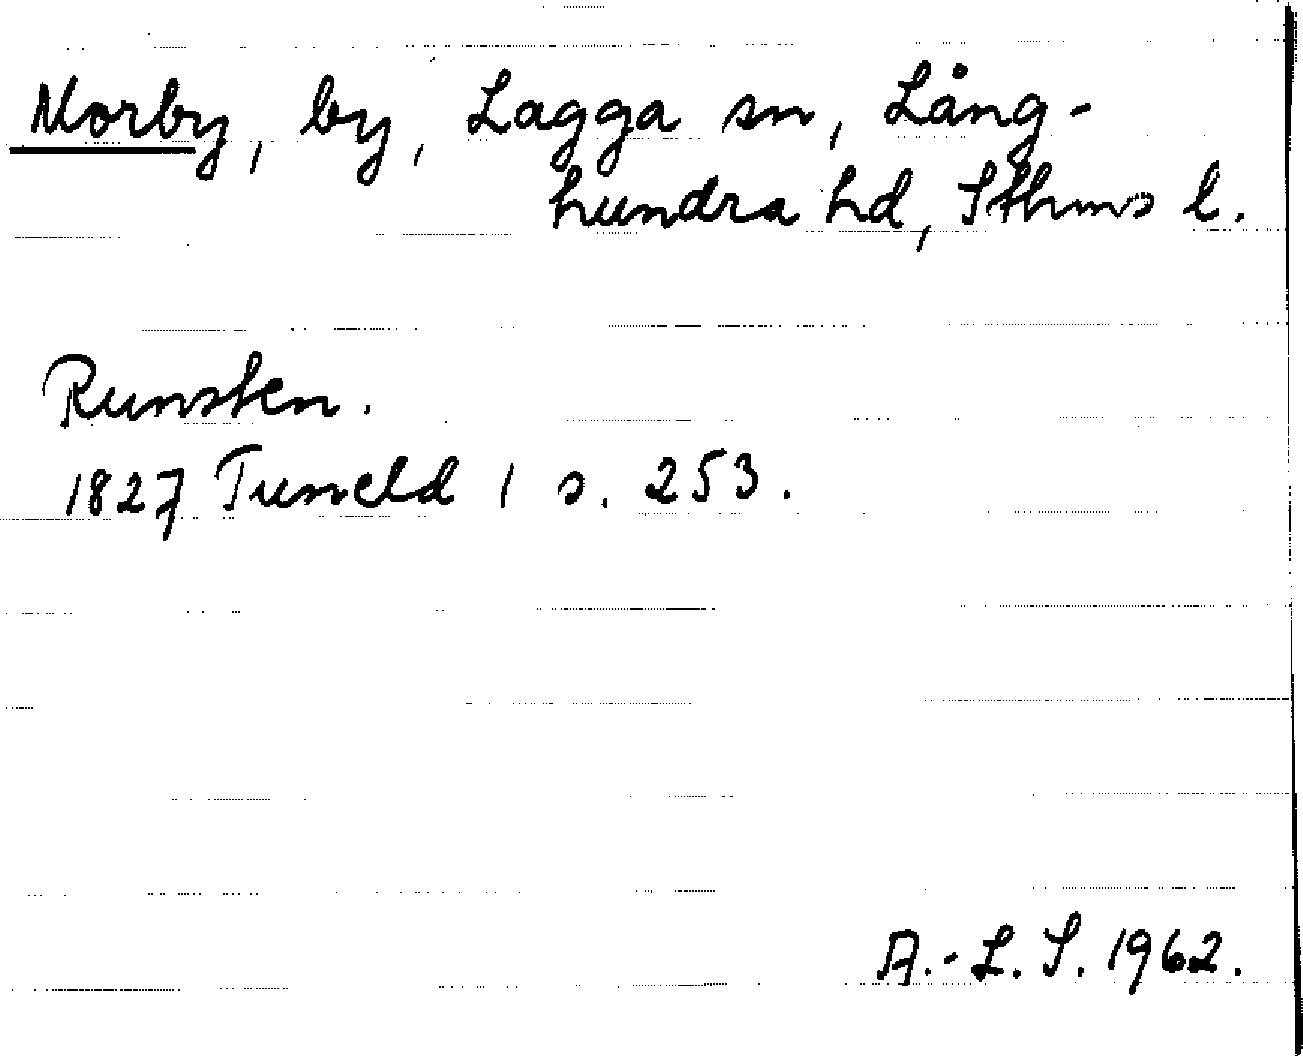 Morby, by, Lagga sn, Lång-
hundra hd, Sthms l.
Runsten.
1827 Tuneld 1 s. 253.
A.-L. S. 1962.